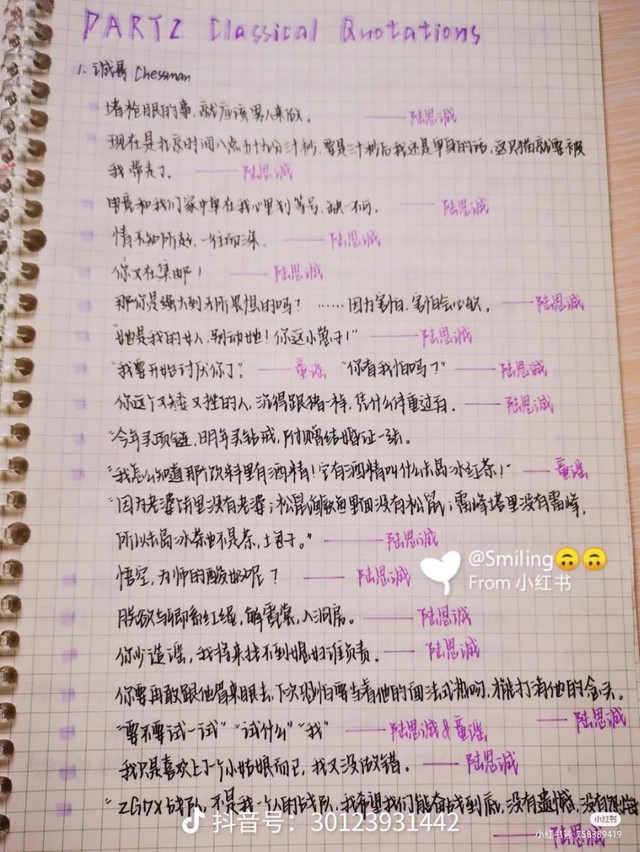 PART2 Classical Quotations
1. 诚哥 Chessman
堵枪眼的事,就应该男人来做。 ——陆思诚
现在是北京时间八点五十九分三十秒,要是三十秒后我还是单身的话,这只猫就要被
我带走了。 ——陆思诚
甲 和我们家中单在我心里划等号,缺一不可。 ——陆思诚
情不知所起,一往而深。 ——陆思诚
你又在集邮! ——陆思诚
那你是强大到无所畏惧的吗? ……因为害怕,害怕会心软。 ——陆思诚
"她是我的女人,别动她!你这小崽子!" ——陆思诚
"我要开始讨厌你了。" ——童谣 "你看我怕吗?" ——陆思诚
你这个又矮又挫的人,沉得跟猪一样,凭什么体重过百。 ——陆思诚
"今年买项链,明年买钻戒,附赠结婚证一张。
"我怎么知道那个饮料里有酒精!它有酒精叫什么长岛冰红茶!" ——童谣
"因为老婆饼里没有老婆;松鼠鳜鱼里面没有松鼠;雷峰塔里没有雷峰,
所以长岛冰茶也不是茶,土包子。" ——陆思诚
悟空,为师的酸奶呢? ——陆思诚
脱 粉红 ,解霓裳,入洞房。 ——陆思诚
你少造谣,我将来找不到媳妇谁负责。 ——陆思诚
你要再敢跟他眉来眼去,下次恐怕要当着他的面法式热吻,才能打消他的念头。
——陆思诚
"要不要试一试" "试什么" "我" ——陆思诚&童谣
我只是喜欢上了个小姑娘而已,我又没做错。 ——陆思诚
"ZGDX战队,不是我一个人的战队,我希望我们能奋战到底,没有遗憾,没有
——陆思诚
@Smiling🙃🙃
From 小红书
抖音号:30123931442
小红书
小红书号:758389419